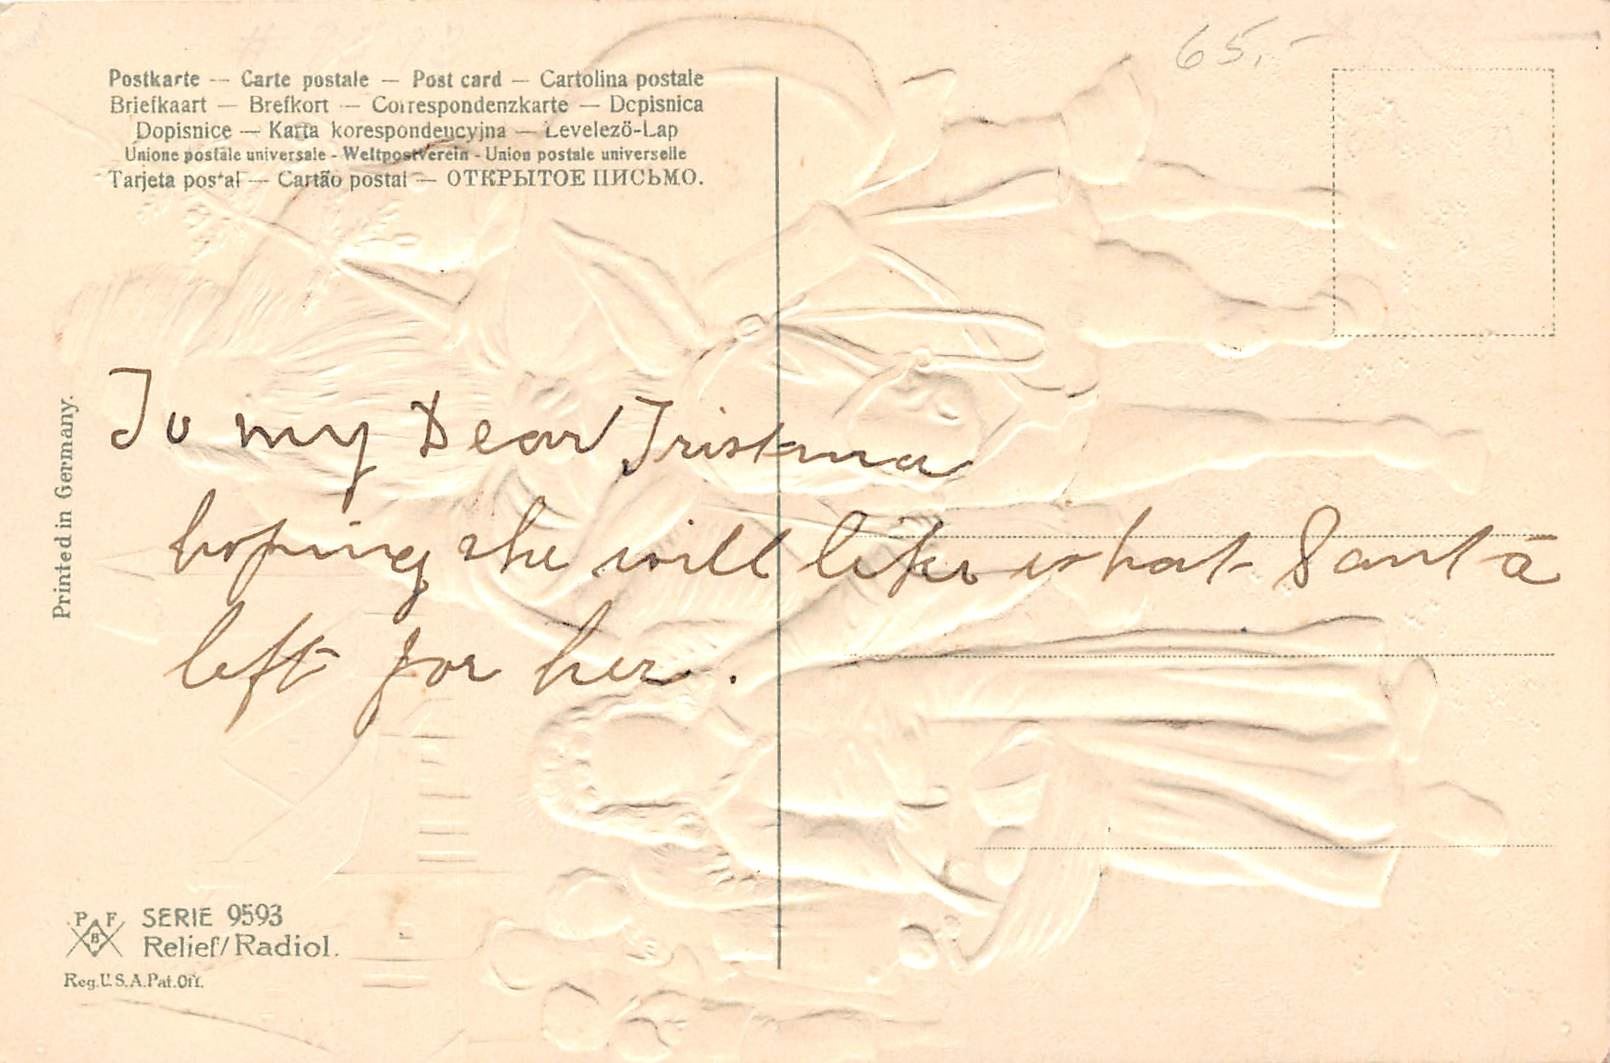 65.-
Postkarte — Carte postale — Post card — Cartolina postale
Briefkaart — Brefkort — Correspondenzkarte — Dopisnica
Dopisnice — Karta korespondencyjna — Levelező-Lap
Unione postale universale - Weltpostverein - Union postale universelle
Tarjeta postal — Cartão postal — ОТКРЫТОЕ ПИСЬМО.
Printed in Germany.
To my Dear
hoping she will like what Santa
left for her.
P F
B
SERIE 9593
Relief/Radiol.
Reg.U.S.A.Pat.Off.